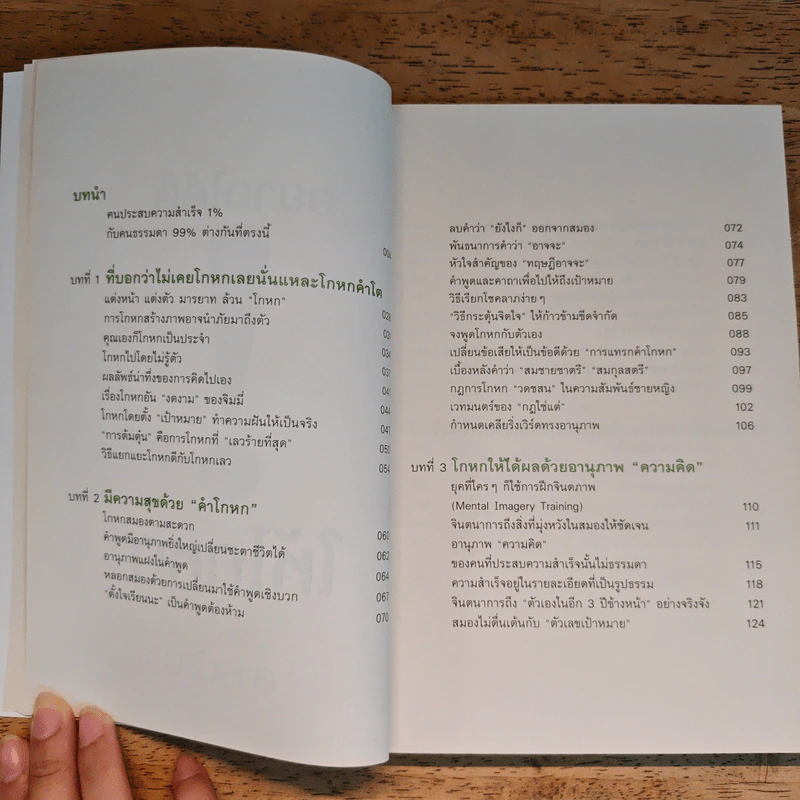 บทนำ
คนประสบความสำเร็จ 1%
กับคนธรรมดา 99% ต่างกันที่ตรงนี้
บทที่ 1 ที่บอกว่าไม่เคยโกหกเลยนั่นแหละโกหกคำโต
แต่งหน้า แต่งตัว มารยาท ล้วน "โกหก" 028
การโกหกสร้างภาพอาจนำภัยมาถึงตัว
คุณเองก็โกหกเป็นประจำ
โกหกไปโดยไม่รู้ตัว 034
ผลลัพธ์น่าทึ่งของการคิดไปเอง 037
เรื่องโกหกอัน "งดงาม" ของจิมมี่ 041
โกหกโดยตั้ง "เป้าหมาย" ทำความฝันให้เป็นจริง 044
"การต้มตุ๋น" คือการโกหกที่ "เลวร้ายที่สุด" 047
วิธีแยกแยะโกหกดีกับโกหกเลว 050
054
บทที่ 2 มีความสุขด้วย "คำโกหก"
โกหกสมองตามสะดวก 060
คำพูดมีอานุภาพยิ่งใหญ่เปลี่ยนชะตาชีวิตได้ 062
อานุภาพแฝงในคำพูด 064
หลอกสมองด้วยการเปลี่ยนมาใช้คำพูดเชิงบวก 067
"ตั้งใจเรียนนะ" เป็นคำพูดต้องห้าม 070
ลบคำว่า "ยังไงก็" ออกจากสมอง 072
พันธนาการคำว่า "อาจจะ" 074
หัวใจสำคัญของ "ทฤษฎีอาจจะ" 077
คำพูดและคาถาเพื่อไปให้ถึงเป้าหมาย 079
วิธีเรียกโชคลาภง่ายๆ 083
"วิธีกระตุ้นจิตใจ" ให้ก้าวข้ามขีดจำกัด 085
จงพูดโกหกกับตัวเอง 088
เปลี่ยนข้อเสียให้เป็นข้อดีด้วย "การแทรกคำโกหก" 093
เบื้องหลังคำว่า "สมชายชาตรี" "สมกุลสตรี" 097
กฎการโกหก "วดชสน" ในความสัมพันธ์ชายหญิง 099
เวทมนตร์ของ "กฎใช่แต่" 102
กำหนดเคลียริ่งเวิร์ดทรงอานุภาพ 106
บทที่ 3 โกหกให้ได้ผลด้วยอานุภาพ "ความคิด"
ยุคที่ใครๆ ก็ใช้การฝึกจินตภาพ
(Mental Imagery Training) 110
จินตนาการถึงสิ่งที่มุ่งหวังในสมองให้ชัดเจน 111
อานุภาพ "ความคิด"
ของคนที่ประสบความสำเร็จนั้นไม่ธรรมดา 115
ความสำเร็จอยู่ในรายละเอียดที่เป็นรูปธรรม 118
จินตนาการถึง "ตัวเองในอีก 3 ปีข้างหน้า" อย่างจริงจัง 121
สมองไม่ตื่นเต้นกับ "ตัวเลขเป้าหมาย" 124